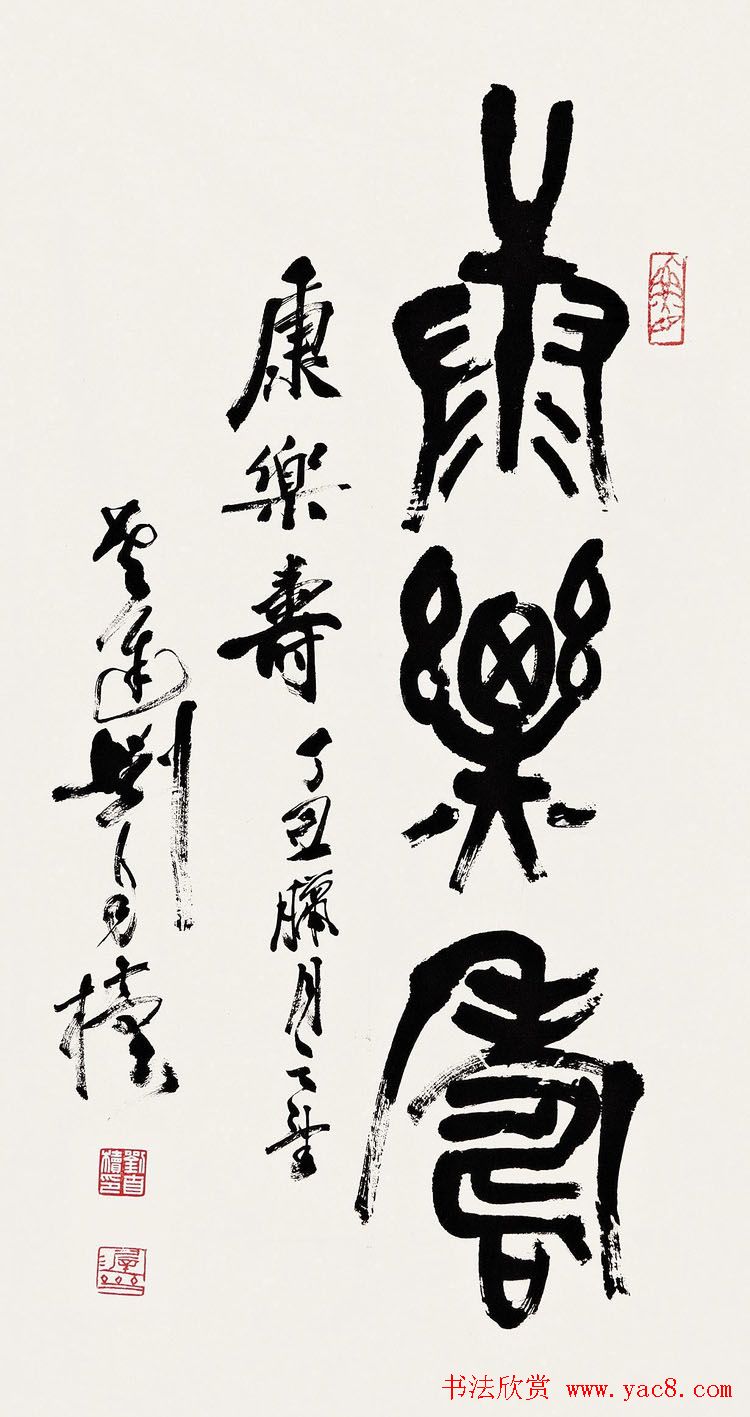 康樂壽
康樂壽 丁丑臘月
劉自櫝
劉自櫝印
书法欣赏 www.yac8.com